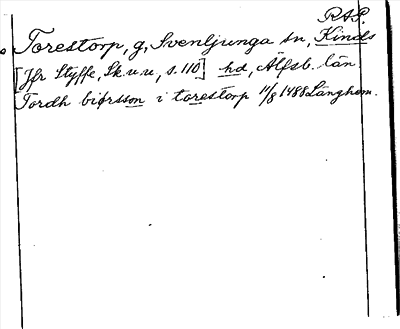 RAP.
Torestorp, g, Svenljunga sn, Kinds
[Jfr Styffe, Sk.u.u, s. 110] hd, Älfsb. län
Tordh biørsson i torestorp 11/8 1488 Långhem.